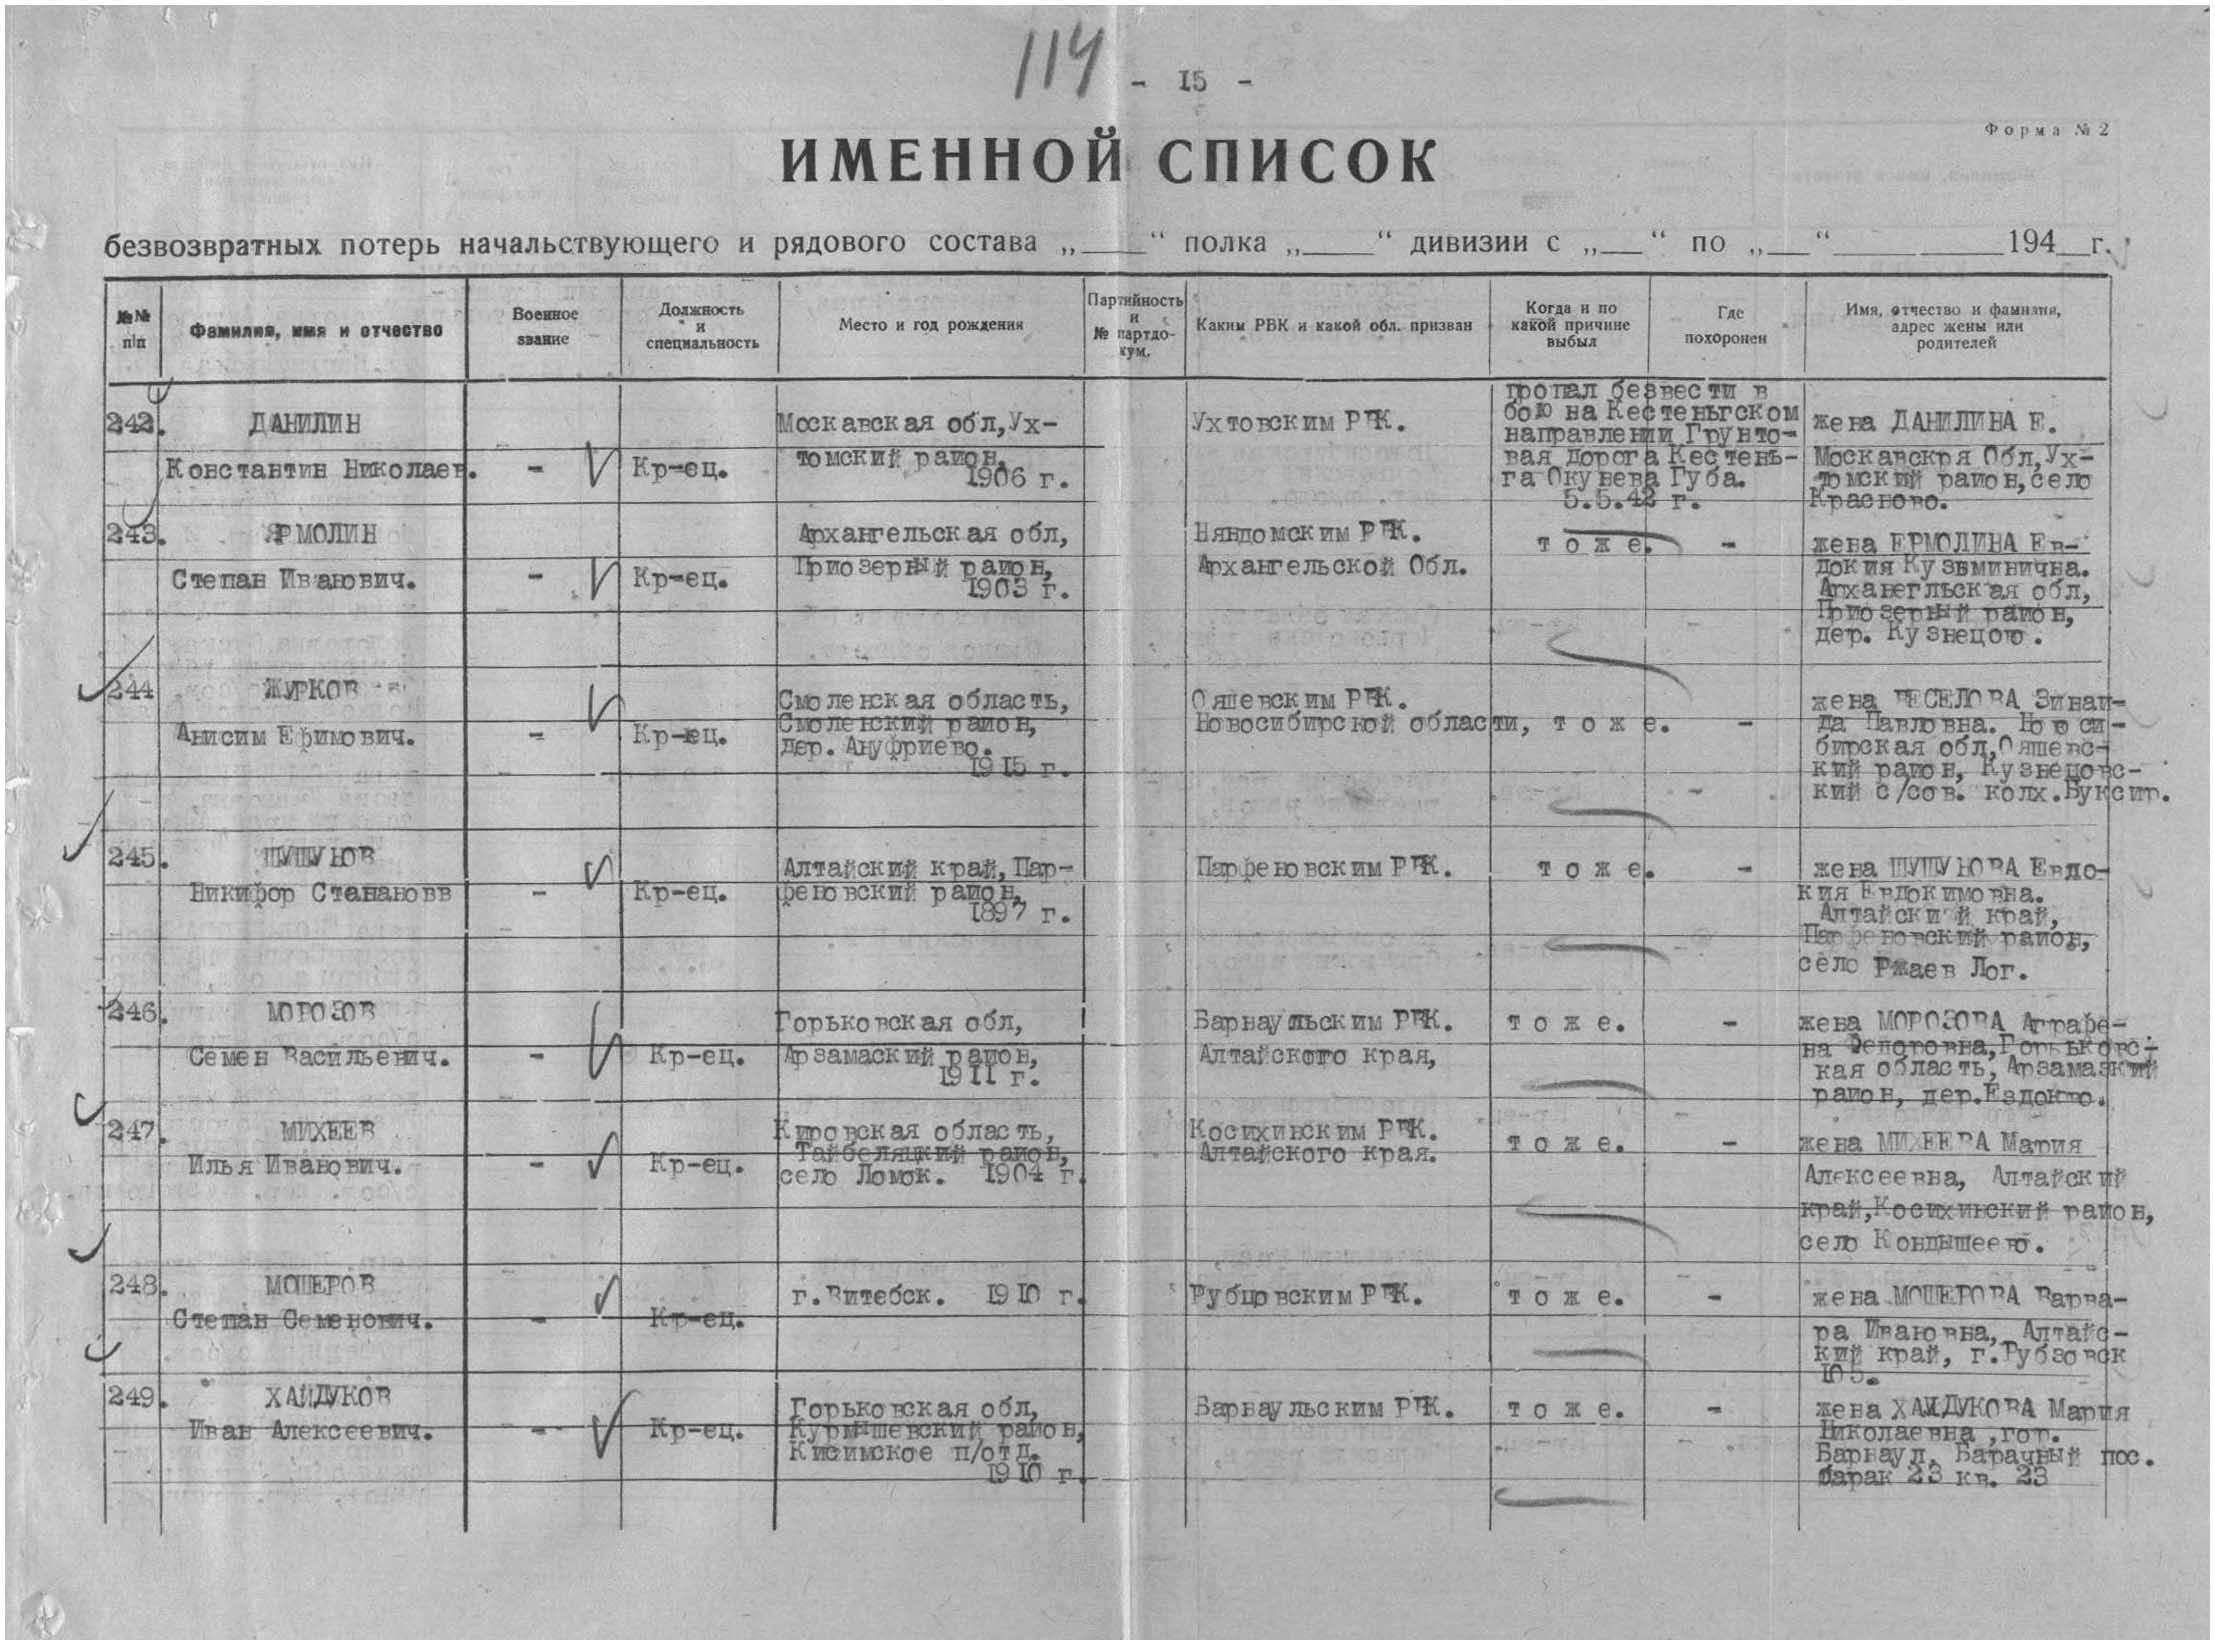 114
- 15 -
Форма № 2
ИМЕННОЙ СПИСОК
безвозвратных потерь начальствующего и рядового состава „____“ полка „____“ дивизии с „__“ по „__“ ________ 194__г.
№№ п/п
Фамилия, имя и отчество
Военное звание
Должность и специальность
Место и год рождения
Партийность и № партдо-кум.
Каким РВК и какой обл. призван
Когда и по какой причине выбыл
Где похоронен
Имя, отчество и фамилия, адрес жены или родителей
242. ДАНИЛИН
Константин Николаев.
-
Кр-ец.
Москавская обл,Ух-
томский район,
1906 г.
Ухтовским РВК.
пропал безвести в
бою на Кестеньгском
направлении Грунто-
вая дорога Кестень-
га Окунева Губа.
5.5.42 г.
жена ДАНИЛИНА Е.
Москавскря Обл,Ух-
томский район,село
Красново.
243. ЯРМОЛИН
Степан Иванович.
-
Кр-ец.
Архангельская обл,
Приозерный район,
1903 г.
Няндомским РВК.
Архангельской Обл.
т о ж е.
-
жена ЕРМОЛИНА Ев-
докия Кузьминична.
Архангльская обл,
Приозерный район,
дер. Кузнецово.
244 ЖУРКОВ
Анисим Ефимович.
-
Кр-ец.
Смоленская область,
Смоленский район,
дер. Ануфриево.
1915 г.
Ояшевским РВК.
Новосибирской области,
т о ж е.
-
жена ВЕСЕЛОВА Зинаи-
да Павловна. Новоси-
бирская обл,Ояшевс-
кий район, Кузнецовс-
кий с/сов. колх.Буксир.
245. ШУШУНОВ
Никифор Станановв
-
Кр-ец.
Алтайский край, Пар-
феновский район,
1897 г.
Парфеновским РВК.
т о ж е.
-
жена ШУШУНОВА Евдо-
кия Евдокимовна.
Алтайский край,
Парфеновский район,
село Ржаев Лог.
246. МОРОЗОВ
Семен Васильевич.
-
Кр-ец.
Горьковская обл,
Арзамаский район,
1911 г.
Барнаульским РВК.
Алтайского края,
т о ж е.
-
жена МОРОЗОВА Аграфе-
на Федоровна,Горьковс-
кая область, Арзамазкий
район, дер.Ездоково.
247. МИХЕЕВ
Илья Иванович.
-
Кр-ец.
Кировская область,
Тайбеляцкий район,
село Ломок. 1904 г.
Косихинским РВК.
Алтайского края.
т о ж е.
-
жена МИХЕЕВА Мария
Алексеевна, Алтайский
край,Косихинский район,
село Кондышеево.
248. МОШЕРОВ
Степан Семенович.
-
Кр-ец.
г.Витебск. 1910 г.
Рубцовским РВК.
т о ж е.
-
жена МОШЕРОВА Варва-
ра Ивановна, Алтайс-
кий край, г.Рубзовск
105.
249. ХАЙДУКОВ
Иван Алексеевич.
-
Кр-ец.
Горьковская обл,
Курмышевский район,
Кисимское п/отд.
1910 г.
Барнаульским РВК.
т о ж е.
-
жена ХАЙДУКОВА Мария
Николаевна,гор.
Барнаул, Барачный пос.
барак 23 кв. 23